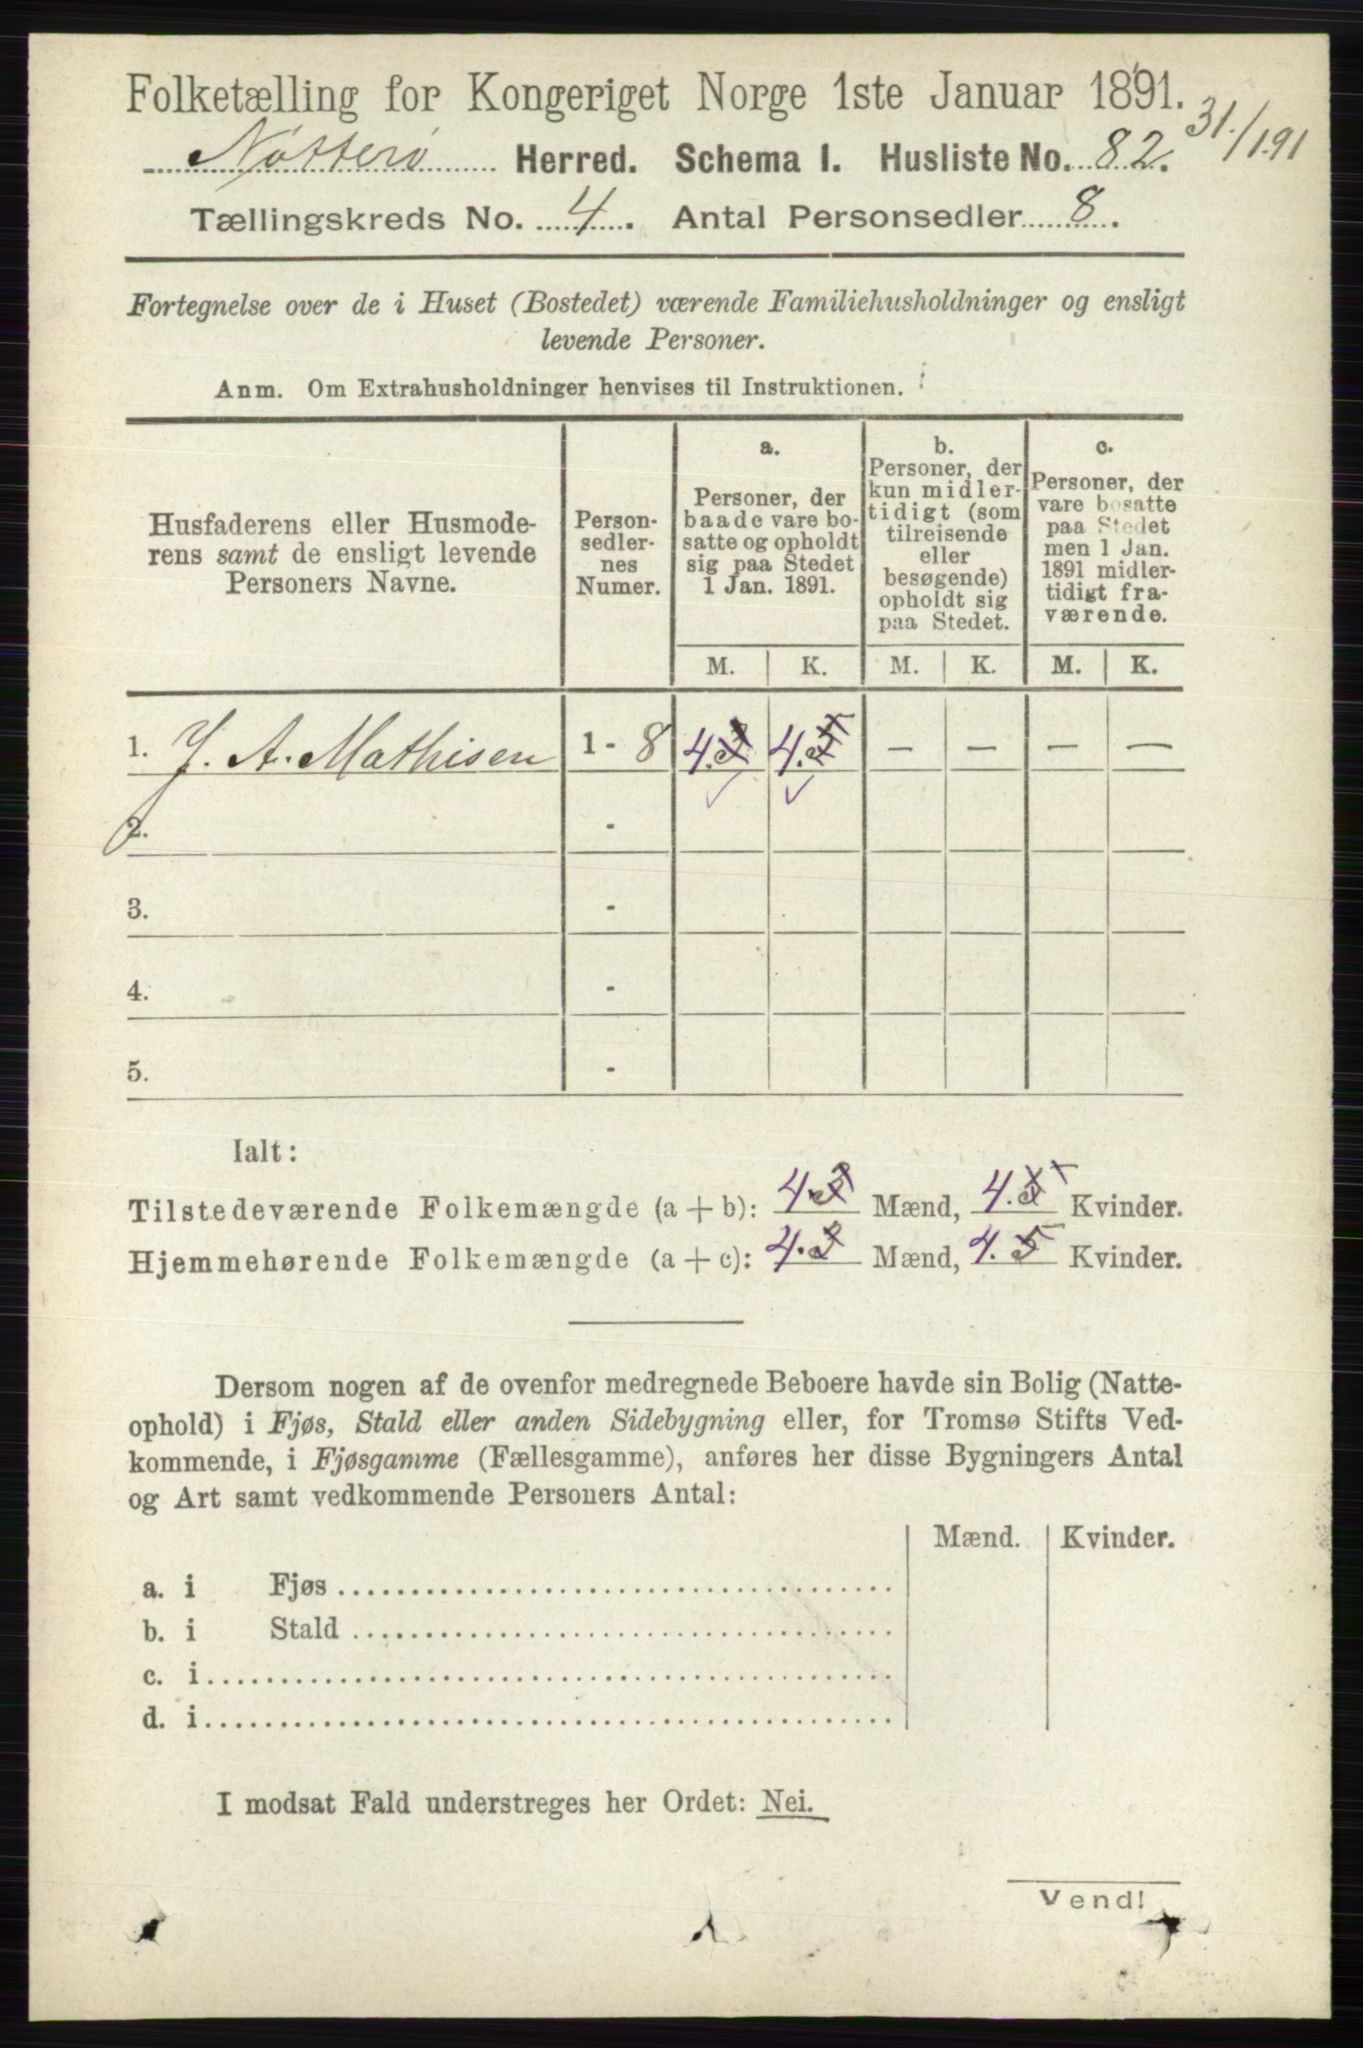 Folketælling for Kongeriget Norge 1ste Januar 1891.
Nøtterø Herred. Schema I. Husliste No. 82. 31./1.91
Tællingskreds No. 4. Antal Personsedler 8.
Fortegnelse over de i Huset (Bostedet) værende Familiehusholdninger og ensligt
levende Personer.
Anm. Om Extrahusholdninger henvises til Instruktionen.
Husfaderens eller Husmode-
rens samt de ensligt levende
Personers Navne.
Person-
sedler-
nes
Numer.
a.
Personer, der
baade vare bo-
satte og opholdt
sig paa Stedet
1 Jan. 1891.
b.
Personer, der
kun midler-
tidigt (som
tilreisende
eller
besøgende)
opholdt sig
paa Stedet.
c.
Personer, der
vare bosatte
paa Stedet
men 1 Jan.
1891 midler-
tidigt fra-
værende.
M. K. M. K. M. K.
1. J. A. Mathisen 1 - 8 4. 3 4. 5 — — — —
2. -
3. -
4. -
5. -
Ialt:
Tilstedeværende Folkemængde (a + b): 4. 3 Mænd, 4. 5 Kvinder.
Hjemmehørende Folkemængde (a + c): 4. 3 Mænd, 4. 5 Kvinder.
Dersom nogen af de ovenfor medregnede Beboere havde sin Bolig (Natte-
ophold) i Fjøs, Stald eller anden Sidebygning eller, for Tromsø Stifts Ved-
kommende, i Fjøsgamme (Fællesgamme), anføres her disse Bygningers Antal
og Art samt vedkommende Personers Antal:
Mænd. Kvinder.
a. i Fjøs
b. i Stald
c. i
d. i
I modsat Fald understreges her Ordet: Nei.
Vend!